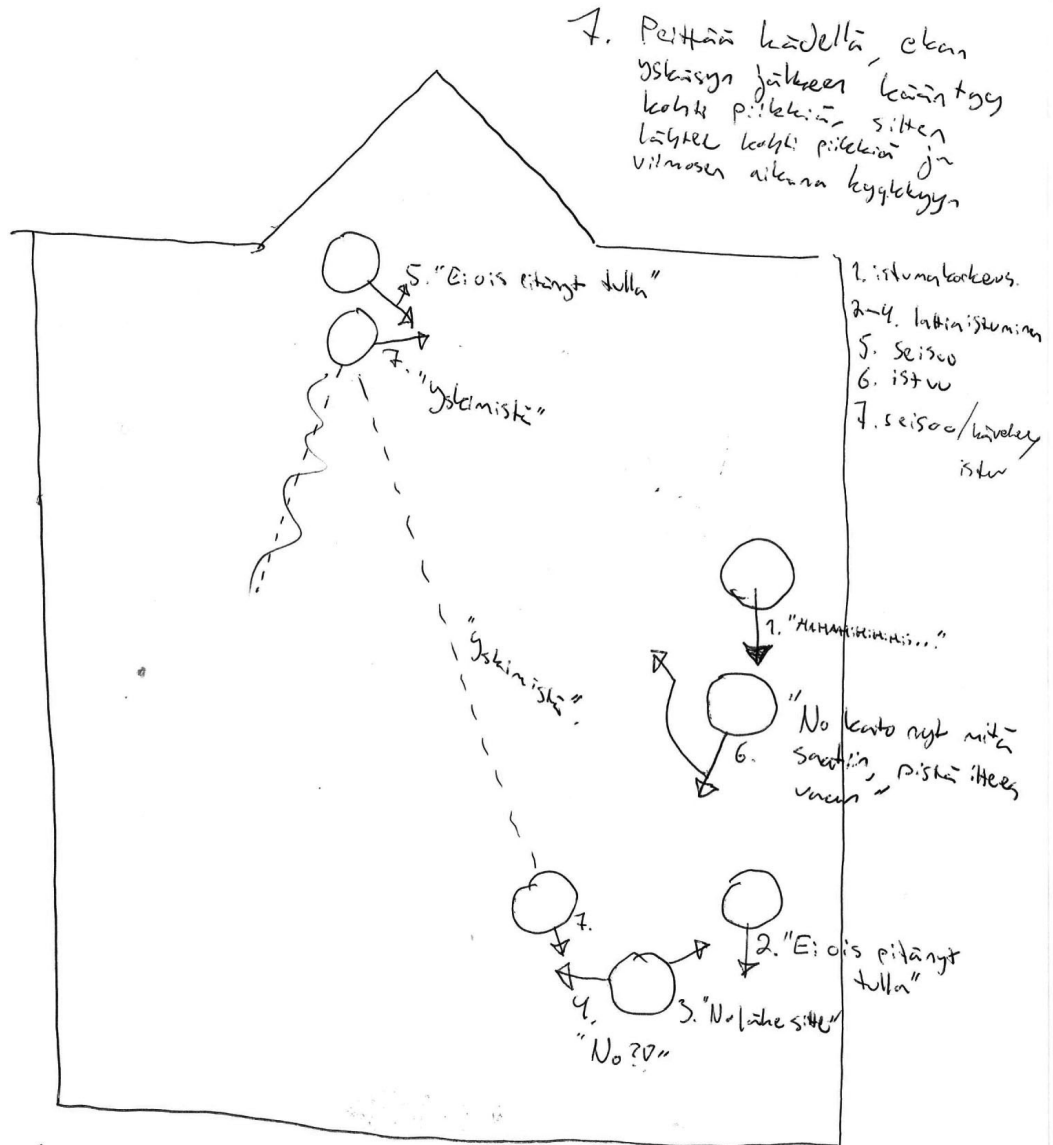 7. Peittää kädellä, ekan
yskäsyn jälkeen kääntyy
kohti piikkiä, sitten
lähtee kohti piikkiä ja
viimosen aikana kyykkyyn
5. "Ei ois pitänyt tulla"
7. "yskimistä"
1. istumakorkeus.
2-4. lattiaistuminen
5. seisoo
6. istuu
7. seisoo/kävelee
istuu
"yskimistä"
1. "HiHiHiHiHiHiHi..."
6. "No kato nyt mitä
saatiin, pistä ittees
vaan"
7.
2. "Ei ois pitänyt
tulla"
3. "No lähe sitte"
4.
"No?!"